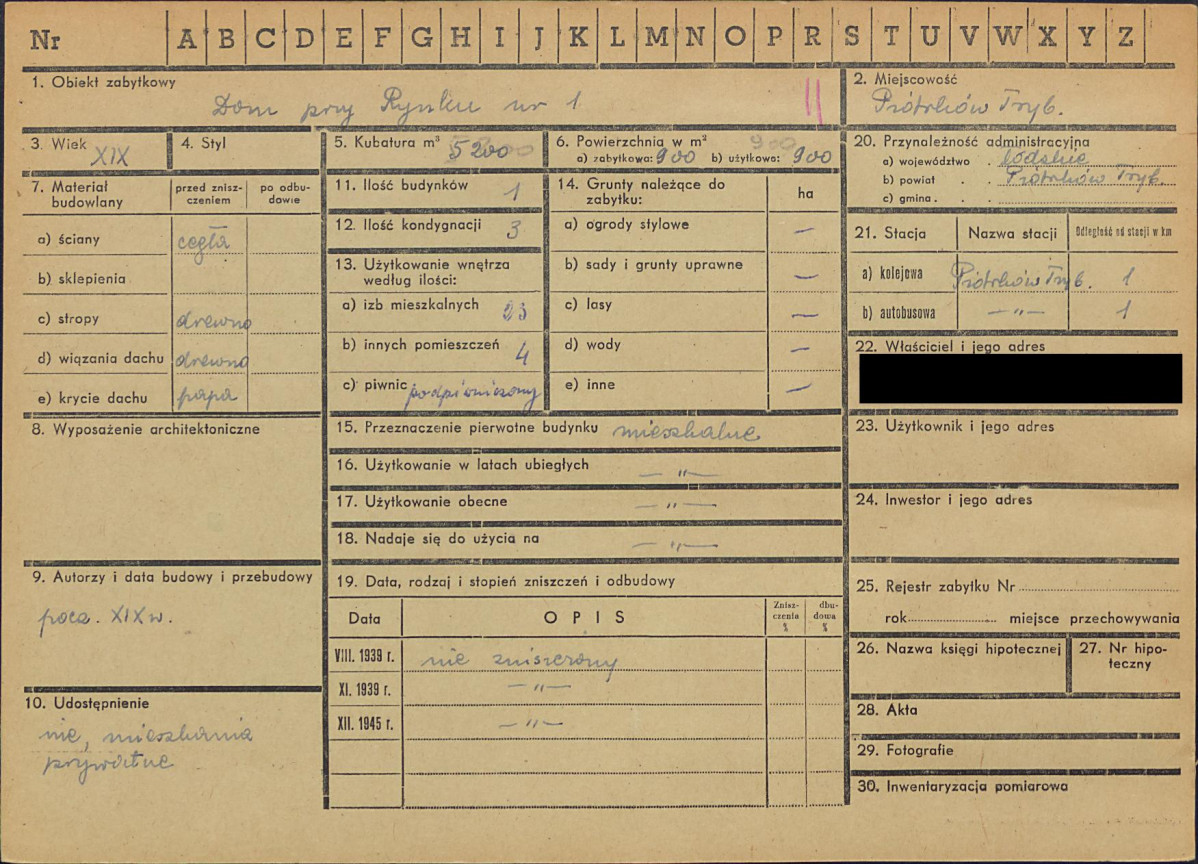 Nr A B C D E F G H I J K L M N O P R S T U V W X Y Z
1. Obiekt zabytkowy
Dom przy Rynku nr 1
II
2. Miejscowość
Piotrków Tryb.
3. Wiek XIX
4. Styl
5. Kubatura m³ 5200
6. Powierzchnia w m² 900
a) zabytkowa: 900 b) użytkowa: 900
20. Przynależność administracyjna
a) województwo . łódzkie
b) powiat . . Piotrków Tryb.
c) gmina . . .
7. Materiał budowlany
przed zniszczeniem
po odbudowie
a) ściany cegła
b) sklepienia
c) stropy drewno
d) wiązania dachu drewno
e) krycie dachu papa
11. Ilość budynków 1
12. Ilość kondygnacji 3
13. Użytkowanie wnętrza
według ilości:
a) izb mieszkalnych 23
b) innych pomieszczeń 4
c) piwnic podpiwniczony
14. Grunty należące do
zabytku:
ha
a) ogrody stylowe —
b) sady i grunty uprawne —
c) lasy —
d) wody —
e) inne —
21. Stacja
Nazwa stacji
Odległość od stacji w km
a) kolejowa Piotrków Tryb. 1
b) autobusowa —"— 1
22. Właściciel i jego adres
8. Wyposażenie architektoniczne
15. Przeznaczenie pierwotne budynku mieszkalne
16. Użytkowanie w latach ubiegłych —"—
17. Użytkowanie obecne —"—
18. Nadaje się do użycia na —"—
23. Użytkownik i jego adres
24. Inwestor i jego adres
9. Autorzy i data budowy i przebudowy
pocz. XIX w.
19. Data, rodzaj i stopień zniszczeń i odbudowy
Data
OPIS
Zniszczenia %
dbudowa %
VIII. 1939 r. nie zniszczony
XI. 1939 r. —"—
XII. 1945 r. —"—
25. Rejestr zabytku Nr
rok miejsce przechowywania
26. Nazwa księgi hipotecznej
27. Nr hipoteczny
10. Udostępnienie
nie, mieszkania
prywatne
28. Akta
29. Fotografie
30. Inwentaryzacja pomiarowa